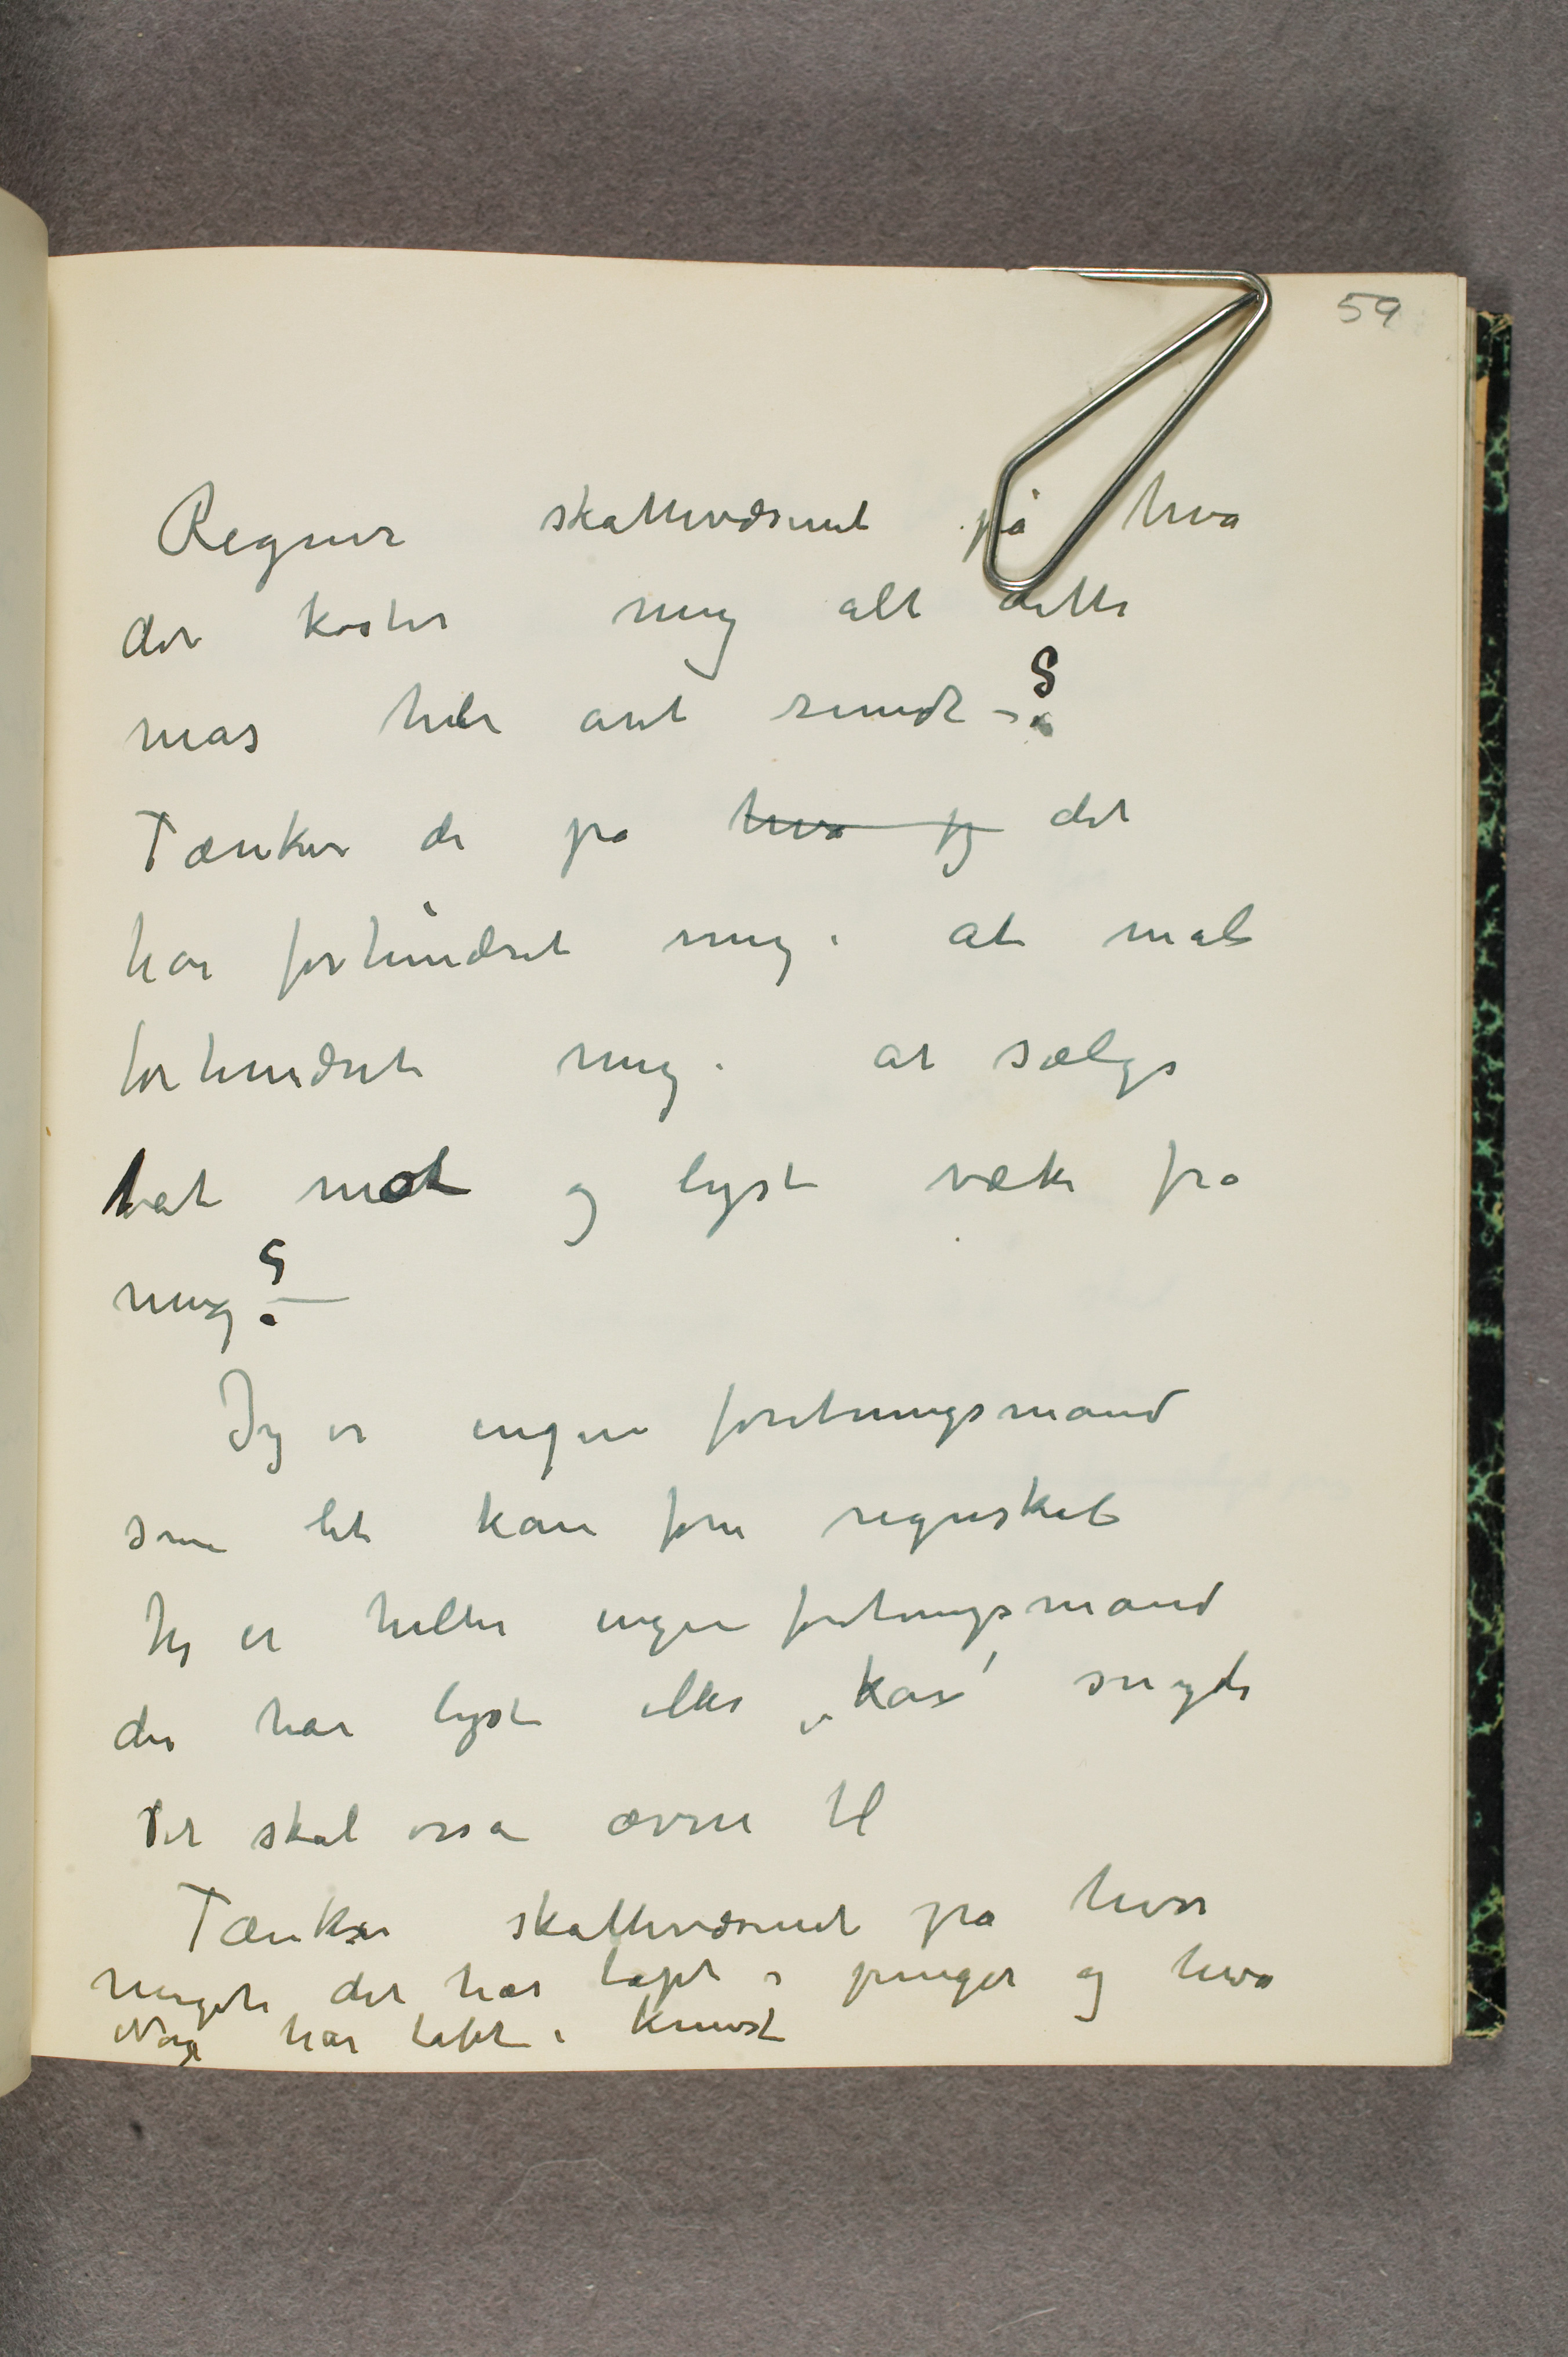 59
Regner skattevæsenet på hva
det koster mig alt dette
mas hele året rundt –?
Tænker de på hva jeg det
har forhindret mig i at male
forhindret mig i at sælge
tat mot og lyst væk fra
mig? –
Jeg er ingen foretningsmand
som let kan føre regnskab
Jeg er heller ingen foretningsmand
der har lyst eller „kan' snyde
Det skal osså ævne til
Tænker skattevæsenet på hvor
meget det har tapt i penger og hva
Norge har tabt i kunst